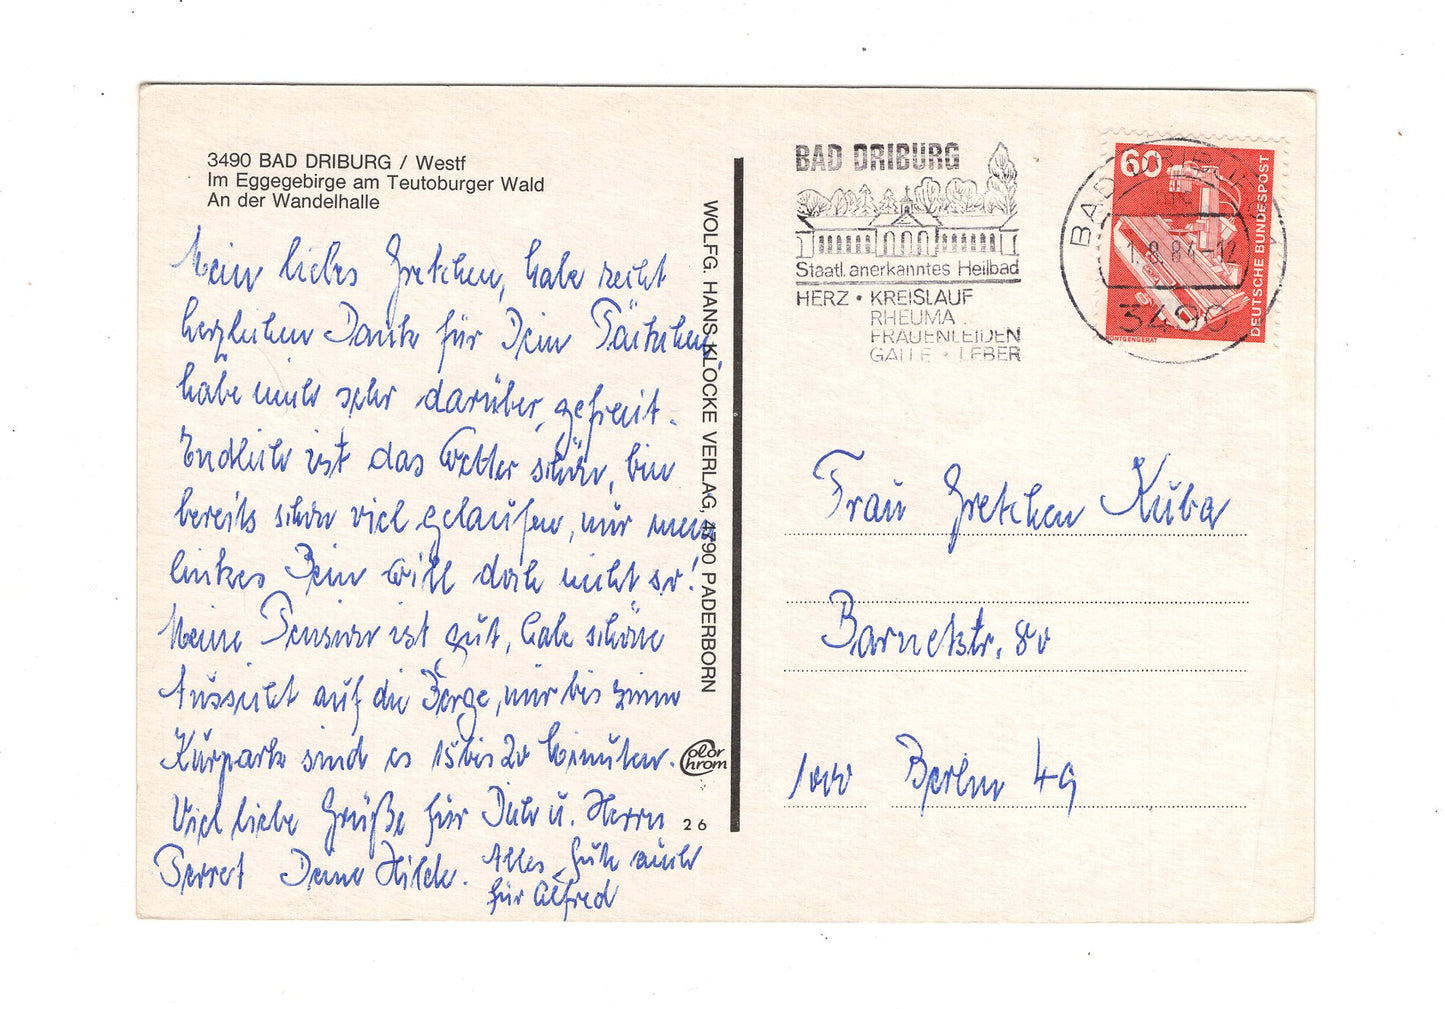 3490 BAD DRIBURG / Westf
Im Eggegebirge am Teutoburger Wald
An der Wandelhalle
Mein liebes Gretchen, habe recht
herzlichen Dank für Dein Päckchen,
habe mich sehr darüber gefreut.
Endlich ist das Wetter schön, bin
bereits schon viel gelaufen, nur mein
linkes Bein will doch nicht so!
Meine Pension ist gut, habe schöne
Aussicht auf die Berge, nur bis zum
Kurpark sind es 15 bis 20 Minuten.
Viel liebe Grüße für Dich u. Herrn
Perret Deine Hilde. Alles Gute auch
für Alfred
WOLFG. HANS KLOCKE VERLAG, 4790 PADERBORN
Color Chrom
26
BAD DRIBURG
Staatl. anerkanntes Heilbad
HERZ · KREISLAUF
RHEUMA
FRAUENLEIDEN
GALLE · LEBER
BAD DRIBURG 1
1.8.84-12
3490
60
DEUTSCHE BUNDESPOST
RÖNTGENGERÄT
Frau Gretchen Kuba
Barnetstr. 80
1000 Berlin 49